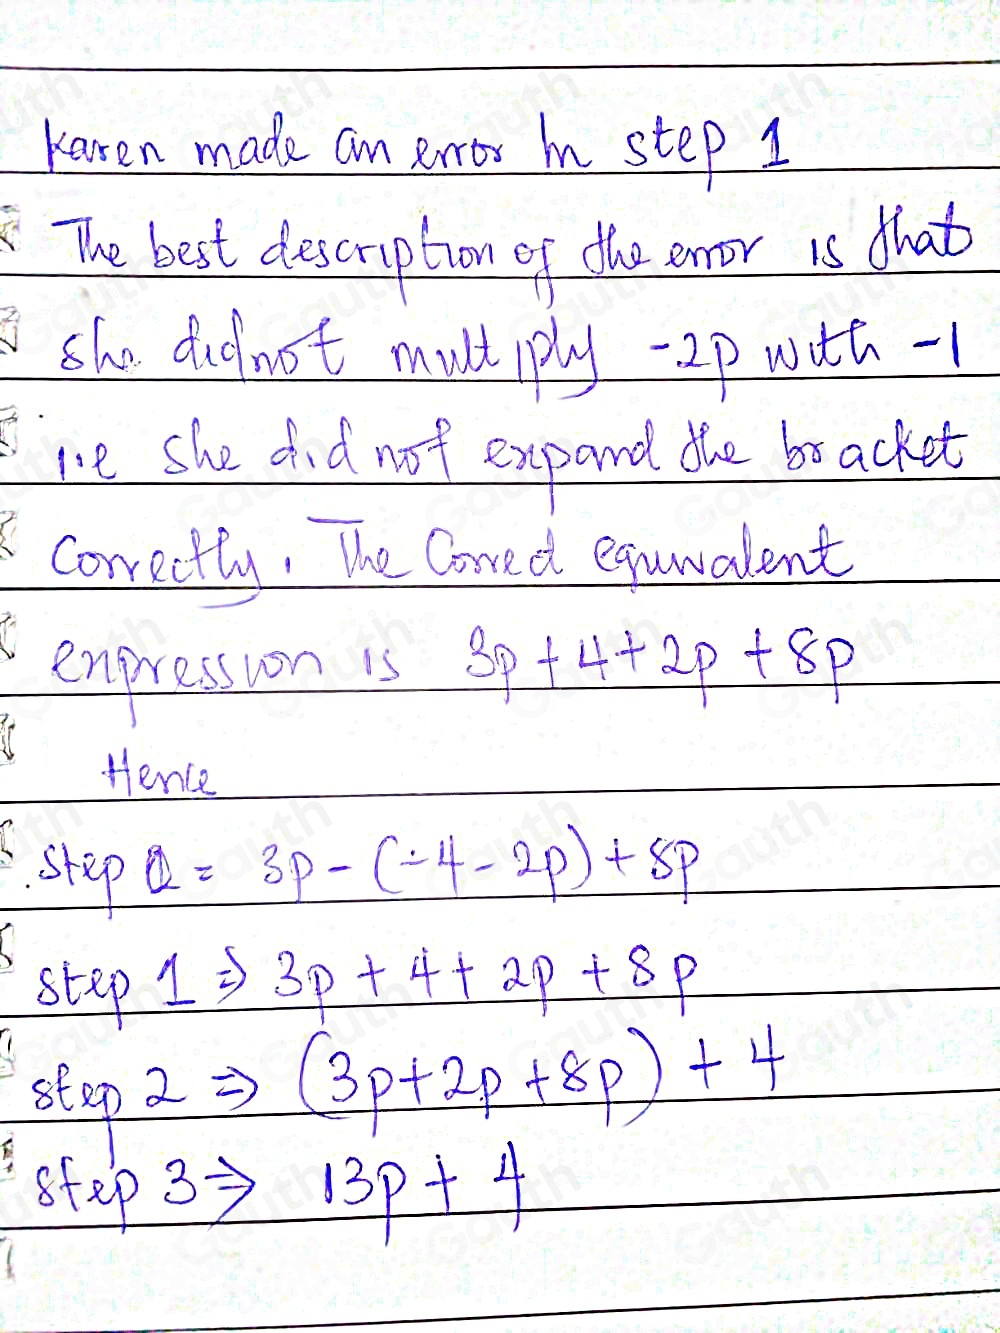 Karen made an error in step 1
The best description of the error is that
she didnot multiply -2p with -1
i.e she did not expand the bracket
correctly. The Correct equivalent
expression is 3p + 4 + 2p + 8p
Hence
step 0 = 3p - (-4 - 2p) + 8p
step 1 ⇒ 3p + 4 + 2p + 8p
step 2 ⇒ (3p + 2p + 8p) + 4
step 3 ⇒ 13p + 4